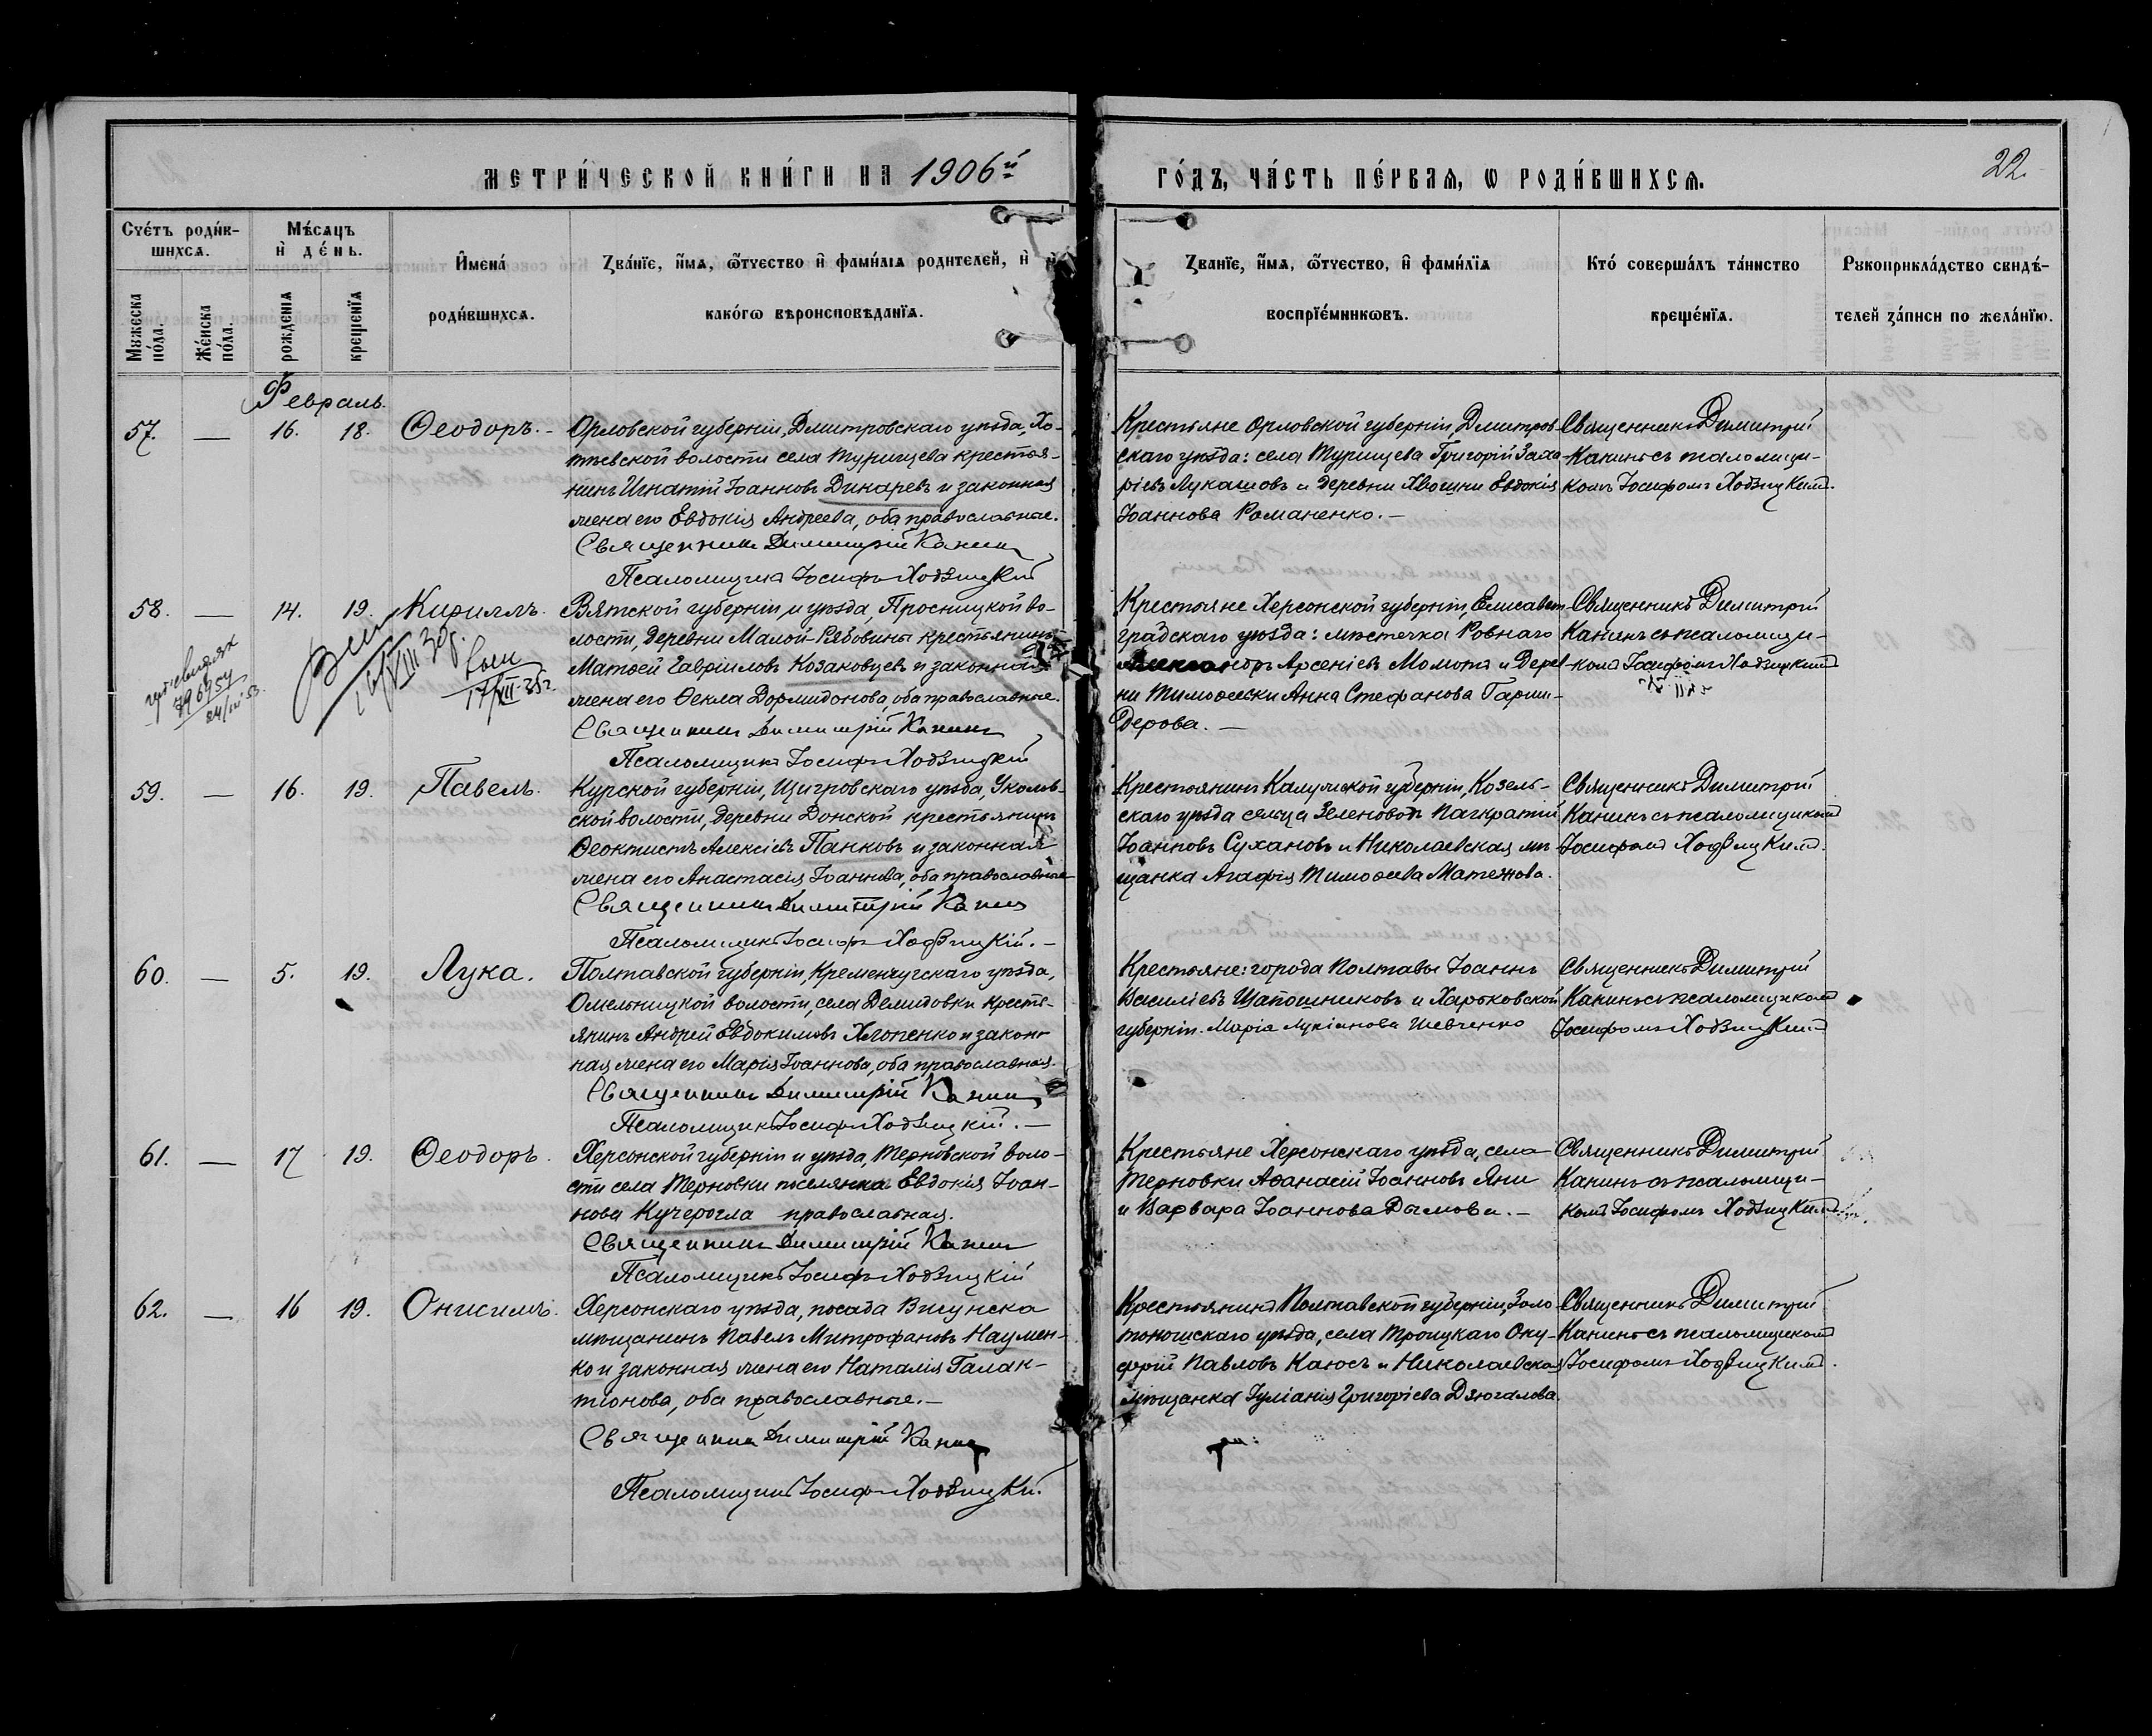 МЕТРИ́ЧЕСКОЙ КНИ́ГИ НА 1906й
ГО́ДЪ, ЧА́СТЬ ПЕ́РВАЯ, Ѡ РОДИ́ВШИХСѦ.
22.
Счетъ роди́в-
шихсѧ.
Мꙋжеска
по́ла.
Же́нска
по́ла.
Мѣ́сѧцъ
и҆ де́нь.
рожденїѧ
крещенїѧ
И҆мена́
роди́вшихсѧ.
Зва́нїе, и҆́мѧ, ѻ҆́тчество и҆ фами́лїѧ родителей, и҆
како́гѡ вѣроисповѣданїѧ.
Зва́нїе, и҆́мѧ, ѻ҆́тчество, и҆ фами́лїѧ
воспрїе́мникѡвъ.
Кто́ соверша́лъ та́инство
креще́нїѧ.
Рꙋкоприкла́дство свидѣ́-
телей за́писи по жела́нїю.
Февраль.
57. — 16. 18. Ѳеодоръ. –
Орловской губерніи, Дмитровскаго уѣзда, Хо-
тьевской волости села Турищева крестья-
нинъ Игнатій Іоанновъ Дикаревъ и законная
жена его Евдокія Андреева, оба православные.
Священникъ Димитрій Канинъ
Псаломщикъ Іосифъ Ходзицкій
Крестьяне Орловской губерніи, Дмитров-
скаго уѣзда: села Турищева Григорій Заха-
ріевъ Лукашовъ и деревни Хвощни Евдокія
Іоаннова Романенко. –
Священникъ Димитрій
Канинъ съ псаломщи-
комъ Іосифомъ Ходзицкимъ.
58. — 14. 19. Кириллъ.
796954
Вятской губерніи и уѣзда, Просницкой во-
лости, деревни Малой-Рябовины крестьянинъ
Матѳей Гавріиловъ Козаковцевъ и законная
жена его Ѳекла Дормидонова, оба православные.
Священникъ Димитрій Канинъ
Псаломщикъ Іосифъ Ходзицкій
Крестьяне Херсонской губерніи, Елисавет-
градскаго уѣзда: мѣстечка Ровнаго
Александръ Арсеніевъ Момотъ и дерев-
ни Тимоѳеевки Анна Стефанова Гарни-
дерова. –
Священникъ Димитрій
Канинъ съ псаломщи-
комъ Іосифомъ Ходзицкимъ
59. — 16. 19. Павелъ.
Курской губерніи, Щигровскаго уѣзда, Уколов-
ской волости, деревни Донской крестьянинъ
Ѳеоктистъ Алексіевъ Панковъ и законная
жена его Анастасія Іоаннова, оба православные
Священникъ Димитрій Канинъ
Псаломщикъ Іосифъ Ходзицкій. –
Крестьянинъ Калужской губерніи, Козель-
скаго уѣзда сельца Зеленоводъ Панкратій
Іоанновъ Сухановъ и Николаевская мѣ-
щанка Агафія Тимоѳеева Матежова.
Священникъ Димитрій
Канинъ съ псаломщикомъ
Іосифомъ Ходзицкимъ.
60. — 5. 19. Лука.
Полтавской губерніи, Кременчугскаго уѣзда,
Омельницкой волости, села Демидовки кресть-
янинъ Андрей Евдокимовъ Хлопенко и закон-
ная жена его Марія Іоаннова, оба православная.
Священникъ Димитрій Канинъ
Псаломщикъ Іосифъ Ходзицкій. –
Крестьяне: города Полтавы Іоаннъ
Василіевъ Шапошниковъ и Харьковской
губерніи. Марія Лукіанова Шевченко
Священникъ Димитрій
Канинъ съ псаломщикомъ
Іосифомъ Ходзицкимъ
61. — 17 19. Ѳеодоръ.
Херсонской губерніи и уѣзда, Терновской воло-
сти села Терновки поселянка Евдокія Іоан-
нова Кучерогла православная.
Священникъ Димитрій Канинъ
Псаломщикъ Іосифъ Ходзицкій
Крестьяне Херсонскаго уѣзда, села
Терновки Аѳанасій Іоанновъ Яни
и Варвара Іоаннова Дымова. –
Священникъ Димитрій
Канинъ съ псаломщи-
комъ Іосифомъ Ходзицкимъ.
62. — 16 19. Онисимъ.
Херсонскаго уѣзда, посада Висунска
мѣщанинъ Павелъ Митрофановъ Наумен-
ко и законная жена его Наталія Галак-
тіонова, оба православные. –
Священникъ Димитрій Канинъ
Псаломщикъ Іосифъ Ходзицкій.
Крестьянинъ Полтавской губерніи, Золо-
тоношскаго уѣзда, села Троицкаго Ону-
фрій Павловъ Каюсъ и Николаевская
мѣщанка Іуліанія Григоріева Дзюгалова.
Священникъ Димитрій
Канинъ съ псаломщикомъ
Іосифомъ Ходзицкимъ.